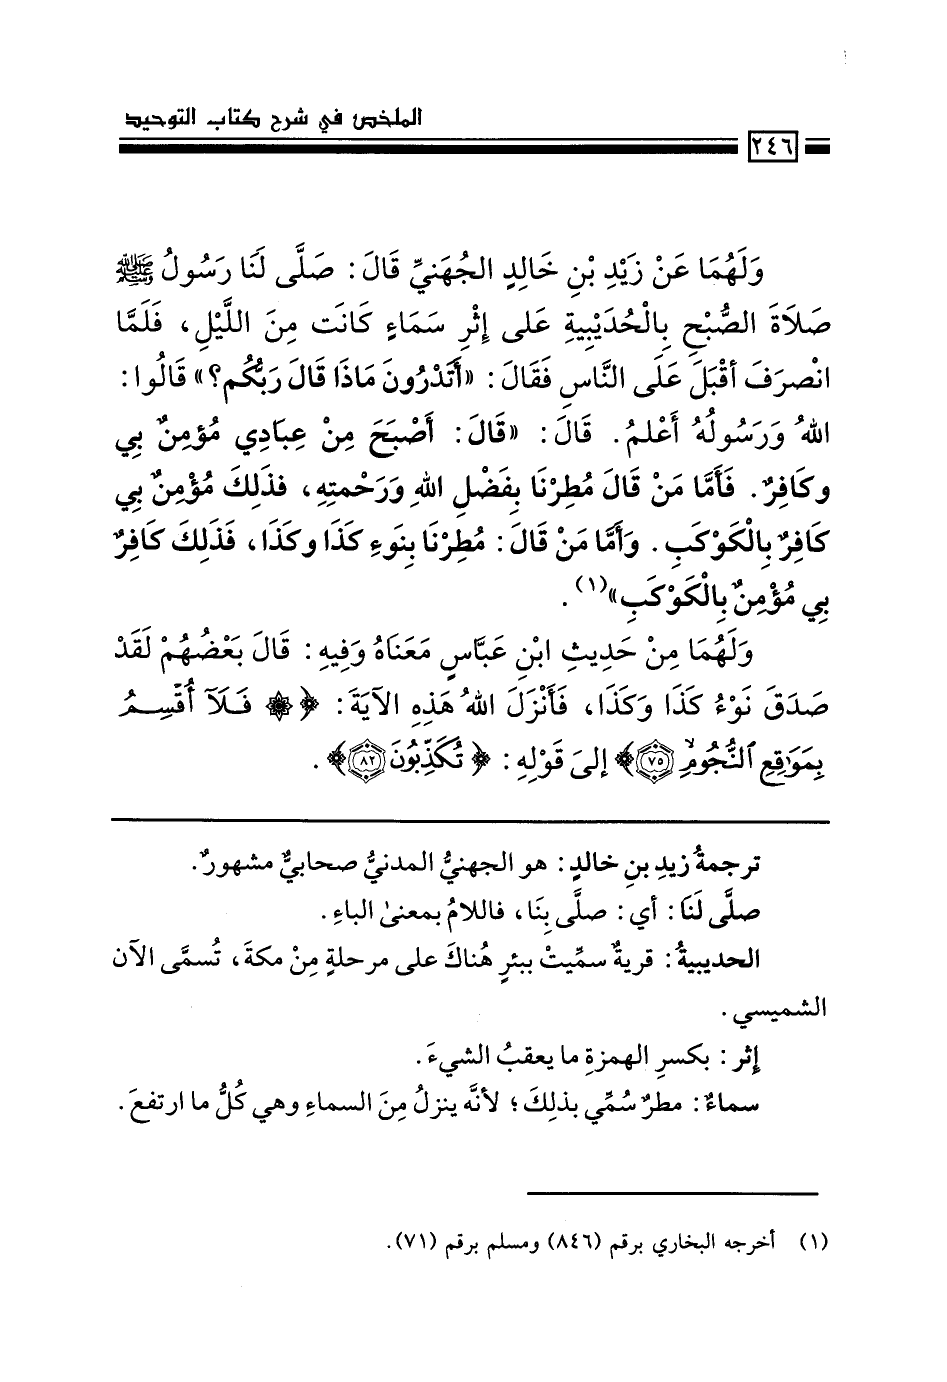 الملخص في شرح كتاب التوحيد
٢٤٦
وَلَهُمَا عَنْ زَيْدِ بْنِ خَالِدٍ الجُهَنيِّ قَالَ: صَلَّى لَنَا رَسُولُ ﷺ
صَلَاةَ الصُّبْحِ بِالْحُدَيْبِيةِ عَلى إِثْرِ سَمَاءٍ كَانَت مِنَ اللَّيْلِ، فَلَمَّا
انْصرَفَ أقْبَلَ عَلَى النَّاسِ فَقَالَ: «أَتَدْرُونَ مَاذَا قَالَ رَبُّكُم؟» قَالُوا:
اللهُ وَرَسُولُهُ أَعْلمُ. قَالَ: «قَالَ: أَصْبَحَ مِنْ عِبَادِي مُؤمِنٌ بِي
وكَافِرٌ. فَأَمَّا مَنْ قَالَ مُطِرْنَا بِفَضْلِ اللهِ وَرَحْمتِهِ، فذلِكَ مُؤْمِنٌ بي
كافِرٌ بِالْكَوْكَبِ. وَأَمَّا مَنْ قَالَ: مُطِرْنَا بِنَوءِ كَذَا وكَذَا، فَذَلِكَ كَافِرٌ
بِي مُؤْمِنٌ بِالْكَوْكَبِ»(١).
وَلَهُمَا مِنْ حَدِيثِ ابْنِ عَبَّاسٍ مَعَنَاهُ وَفِيهِ: قَالَ بَعْضُهُمْ لَقَدْ
صَدَقَ نَوْءُ كَذَا وَكَذَا، فَأَنْزَلَ اللهُ هَذِهِ الآيَةَ: ﴿۞ فَلَآ أُقْسِمُ
بِمَوَٰقِعِ ٱلنُّجُومِ ۝٧٥﴾ إلىَ قَوْلِهِ: ﴿تُكَذِّبُونَ ۝٨٢﴾.
ترجمةُ زيدِ بنِ خالدٍ: هو الجهنيُّ المدنيُّ صحابيٌّ مشهورٌ.
صلَّى لَنَا: أي: صلَّى بِنَا، فاللامُ بمعنىٰ الباءِ.
الحديبيةُ: قريةٌ سمِّيتْ ببئرٍ هُناكَ على مرحلةٍ مِنْ مكةَ، تُسمَّى الآن
الشميسي.
إِثْر: بكسرِ الهمزةِ ما يعقبُ الشيءَ.
سماءٌ: مطرٌ سُمِّي بذلِكَ؛ لأنَّه ينزلُ مِنَ السماءِ وهي كُلُّ ما ارتفعَ.
(١) أخرجه البخاري برقم (٨٤٦) ومسلم برقم (٧١).